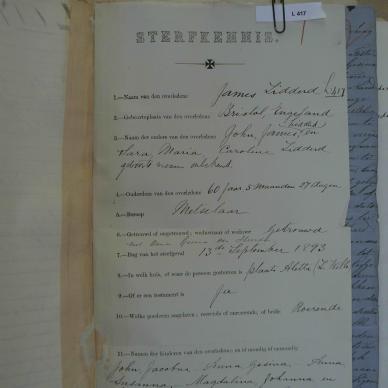 L 417
STERFKENNIS.
1.—Naam van den overledene James Lidderd L417
2.—Geboorteplaats van den overledene Bristol, Engeland
3.—Namen der ouders van den overledene John James, en
Sara Maria Caroline Lidderd
geboorte naam onbekend.
4.—Ouderdom van den overledene 60 jaar 5 maanden 27 dagen
5.—Beroep Metselaar
6.—Getrouwd of ongetrouwd; weduwnaar of weduwe Getrouwd
7.—Dag van het sterfgeval 13de September 1893
8.—In welk huis, of waar de persoon gestorven is plaats
9.—Of er een testament is Ja
10.—Welke goederen nagelaten; roerende of onroerende, of beide Roerende
11.—Namen der kinderen van den overledene; en of mondig of onmondig
John Jacobus, Anna Gesina, Anna
Susanna, Magdalena Johanna en